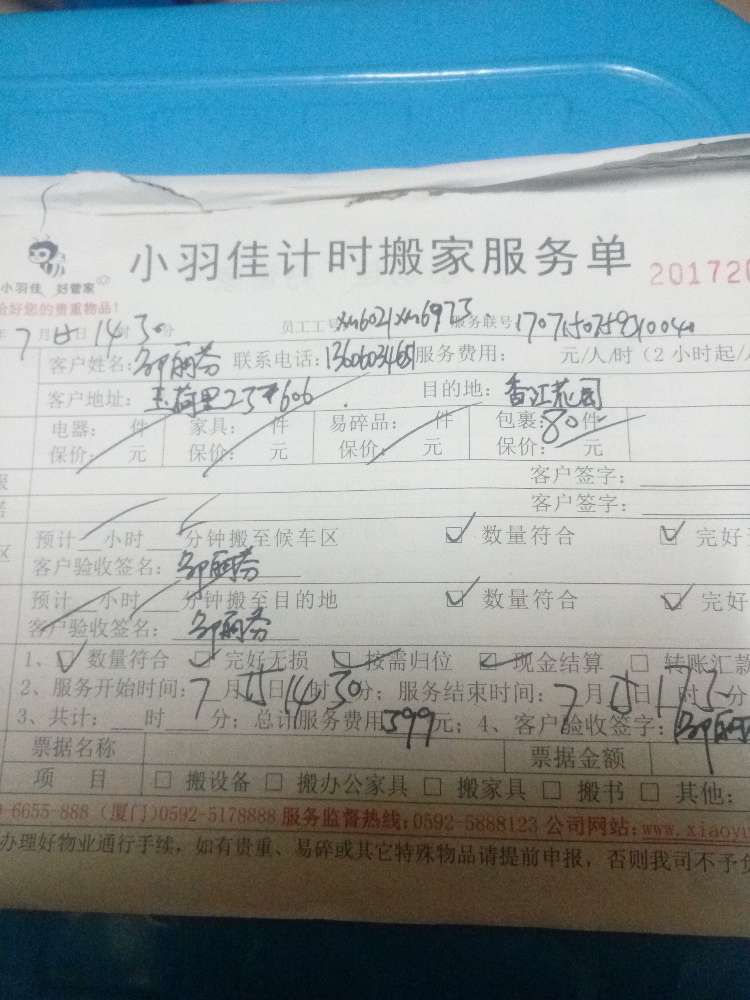 小羽佳计时搬家服务单
201720
小羽佳 好管家
好您的贵重物品!
年7月15日14时30分 员工工号xm6021xm6973 服务联号
客户姓名:邹丽芬 联系电话: 服务费用: 元/人/时(2小时起/
客户地址:玉荷里23#606 目的地:香江花园
电器: 件 家具: 件 易碎品: 件 包裹:80件
保价: 元 保价: 元 保价: 元 保价: 元
客户签字:
客户签字:
预计 小时 分钟搬至候车区 ☑ 数量符合 ☑ 完好
客户验收签名:邹丽芬
预计 小时 分钟搬至目的地 ☑ 数量符合 ☑ 完好
客户验收签名:邹丽芬
1、☑ 数量符合 ☑ 完好无损 ☑ 按需归位 ☑ 现金结算 □ 转账汇款
2、服务开始时间:7月15日14时30分;服务结束时间:7月15日17时 分
3、共计: 时 分;总计服务费用399元;4、客户验收签字:邹丽
票据名称 票据金额
项 目 □ 搬设备 □ 搬办公家具 □ 搬家具 □ 搬书 □ 其他:
6655-888(厦门)0592-5178888 服务监督热线:0592-5888123 公司网站:www.xiaoyu
办理好物业通行手续,如有贵重、易碎或其它特殊物品请提前申报,否则我司不予